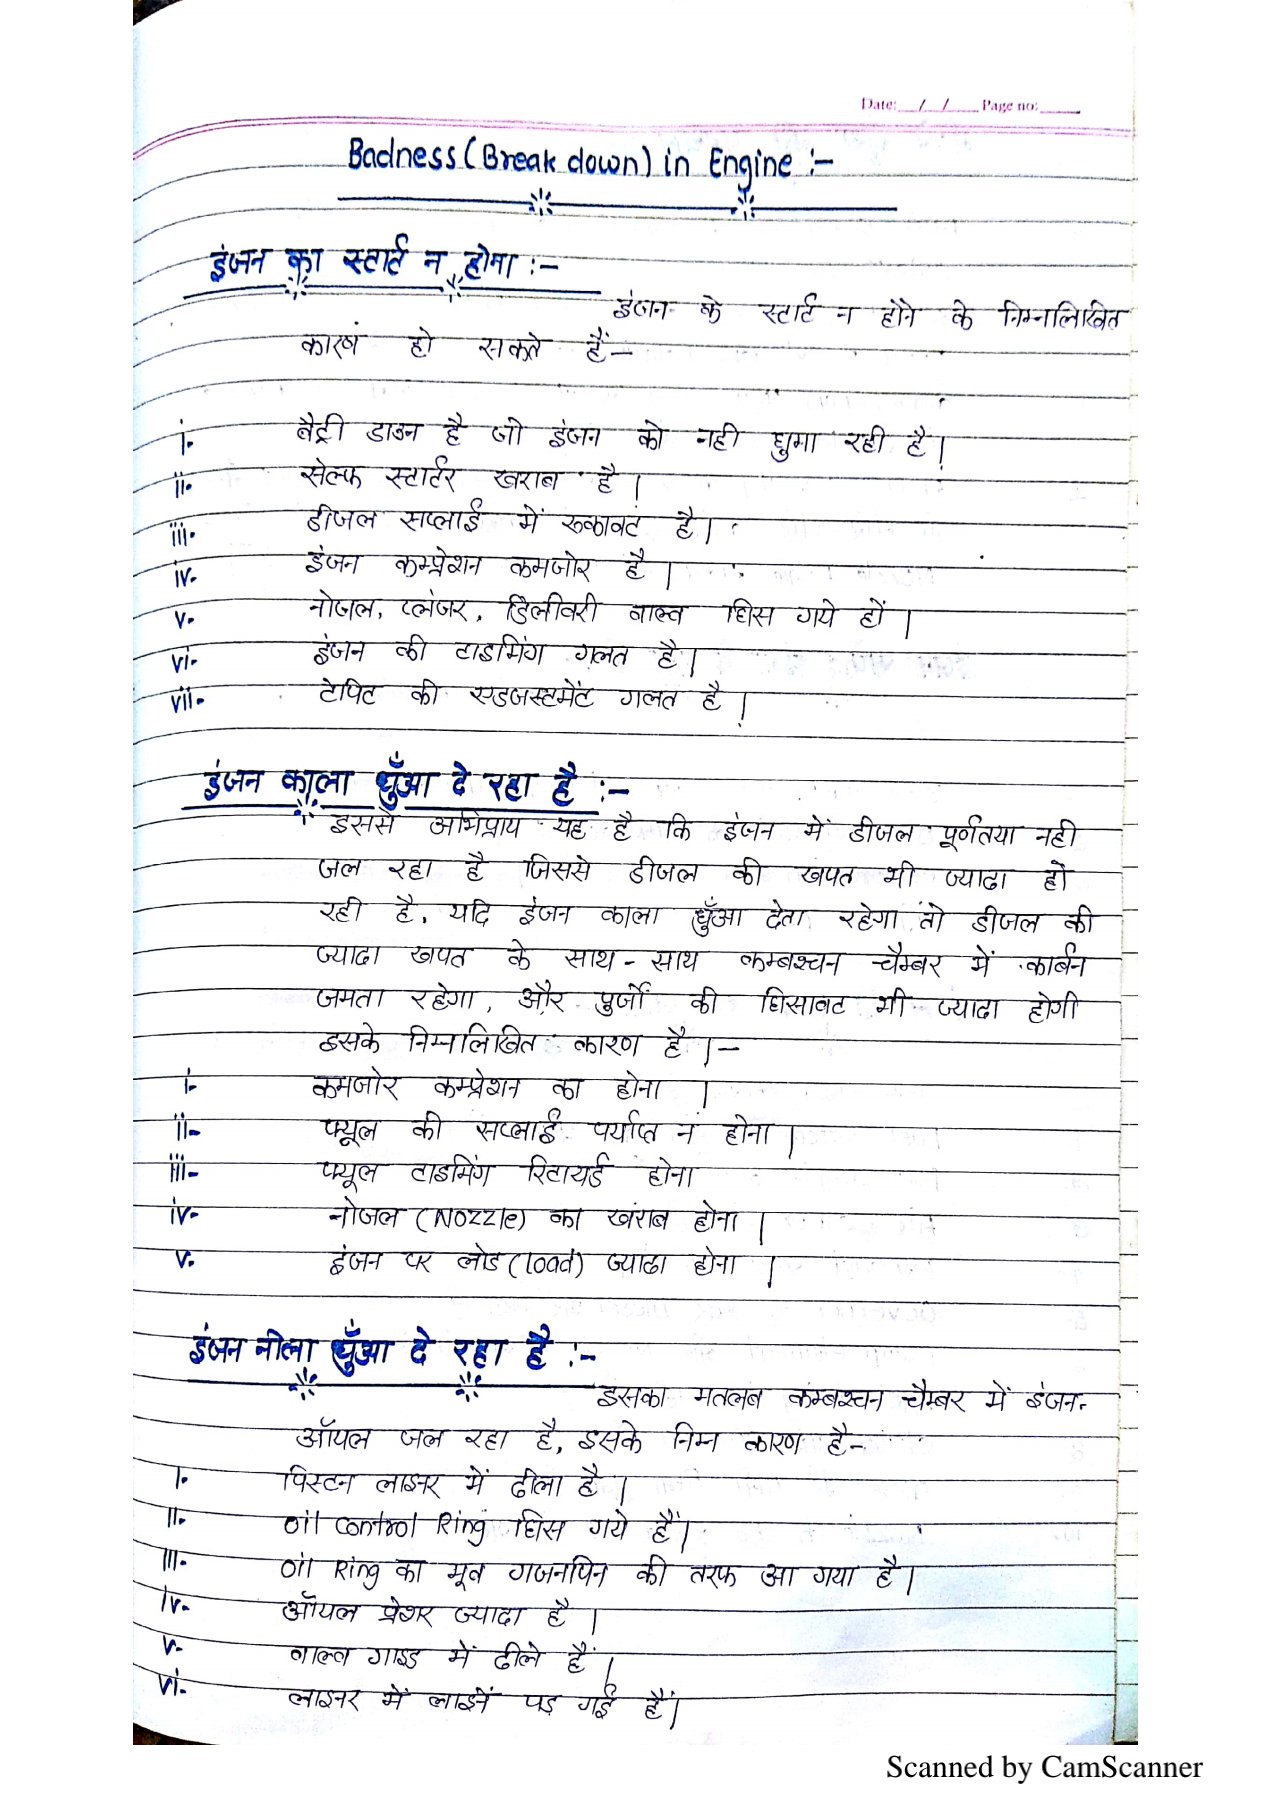 Date: __/__/____ Page no: _____
Badness (Break down) in Engine :-
इंजन का स्टार्ट न होना :-
इंजन के स्टार्ट न होने के निम्नलिखित
कारण हो सकते हैं-
i- बैट्री डाउन है जो इंजन को नही घुमा रही है।
ii- सेल्फ स्टार्टर खराब है।
iii- डीजल सप्लाई में रूकावट है।
iv- इंजन कम्प्रेशन कमजोर है।
v- नोजल, प्लंजर, डिलीवरी वाल्व घिस गये हों।
vi- इंजन की टाइमिंग गलत है।
vii- टेपिट की एडजस्टमेंट गलत है।
इंजन काला धुँआ दे रहा है :-
इससे अभिप्राय यह है कि इंजन में डीजल पूर्णतया नही
जल रहा है जिससे डीजल की खपत भी ज्यादा हो
रही है, यदि इंजन काला धुँआ देता रहेगा तो डीजल की
ज्यादा खपत के साथ-साथ कम्बश्चन चैम्बर में कार्बन
जमता रहेगा, और पुर्जो की घिसावट भी ज्यादा होगी
इसके निम्नलिखित कारण है।-
i- कमजोर कम्प्रेशन का होना।
ii- फ्यूल की सप्लाई पर्याप्त न होना।
iii- फ्यूल टाइमिंग रिटायर्ड होना
iv- नोजल (Nozzle) का खराब होना।
v. इंजन पर लोड (load) ज्यादा होना।
इंजन नीला धुँआ दे रहा है :-
इसका मतलब कम्बश्चन चैम्बर में इंजन-
ऑयल जल रहा है, इसके निम्न कारण है-
i. पिस्टन लाइनर में ढीला है।
ii- oil control Ring घिस गये हैं।
iii- oil Ring का मूव गजनपिन की तरफ आ गया है।
iv- ऑयल प्रेशर ज्यादा है।
v- वाल्व गाइड में ढीले हैं।
vi- लाइनर में लाइनें पड़ गई हैं।
Scanned by CamScanner